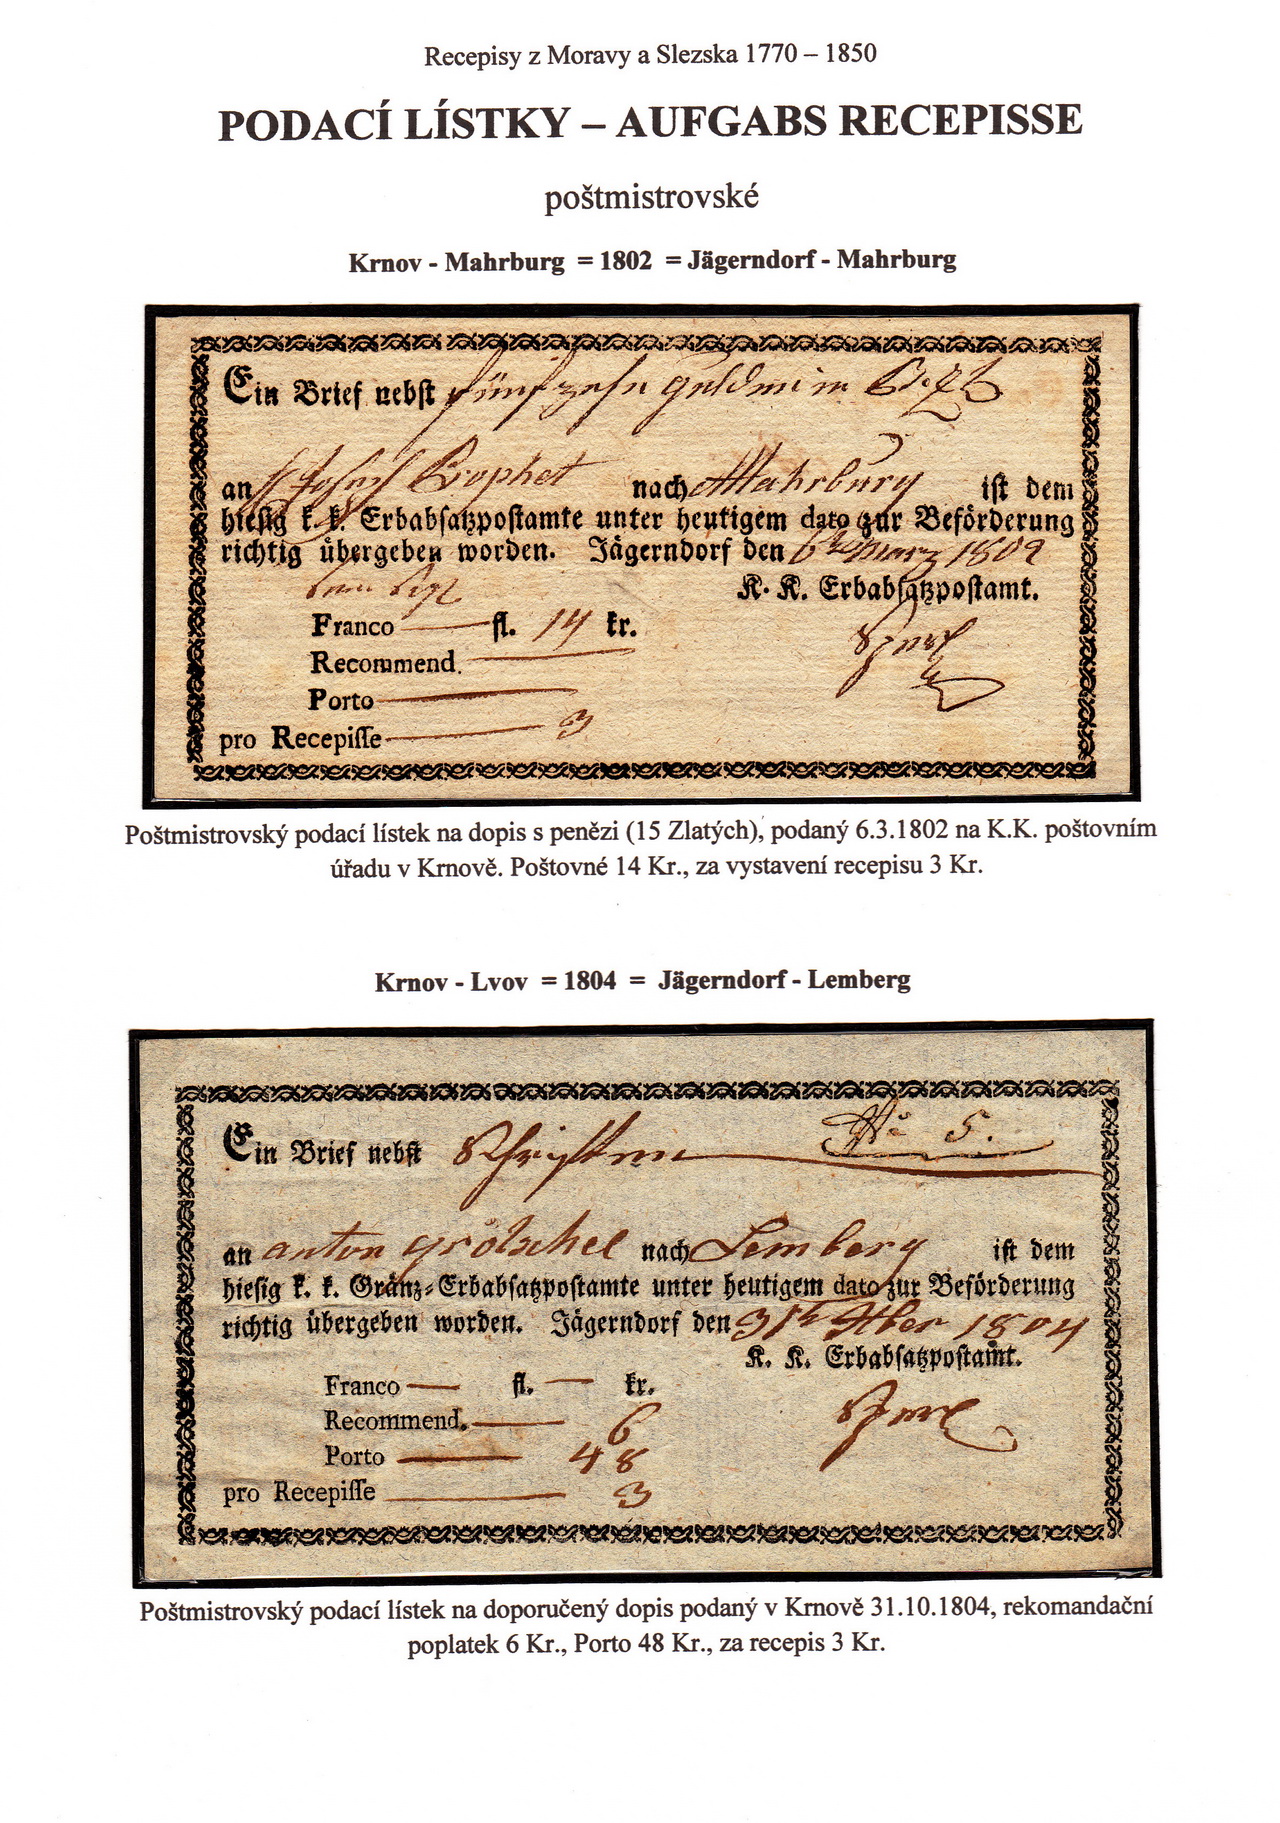 Recepisy z Moravy a Slezska 1770 – 1850
PODACÍ LÍSTKY – AUFGABS RECEPISSE
poštmistrovské
Krnov - Mahrburg = 1802 = Jägerndorf - Mahrburg
Ein Brief nebst fünfzehn gulden in
an Josef Prophet nach Mahrburg ist dem
hiesig k. k. Erbabsatzpostamte unter heutigem dato zur Beförderung
richtig übergeben worden. Jägerndorf den 6t März 1802
K. K. Erbabsatzpostamt.
Franco fl. 14 kr.
Recommend.
Porto
pro Recepisse 3
Poštmistrovský podací lístek na dopis s penězi (15 Zlatých), podaný 6.3.1802 na K.K. poštovním
úřadu v Krnově. Poštovné 14 Kr., za vystavení recepisu 3 Kr.
Krnov - Lvov = 1804 = Jägerndorf - Lemberg
Ein Brief nebst Schriften No 5.
an anton grötschel nach Lemberg ist dem
hiesig k. k. Gränz-Erbabsatzpostamte unter heutigem dato zur Beförderung
richtig übergeben worden. Jägerndorf den 31t 8ber 1804
K. K. Erbabsatzpostamt.
Franco — fl. — kr.
Recommend. 6
Porto 48
pro Recepisse 3
Poštmistrovský podací lístek na doporučený dopis podaný v Krnově 31.10.1804, rekomandační
poplatek 6 Kr., Porto 48 Kr., za recepis 3 Kr.